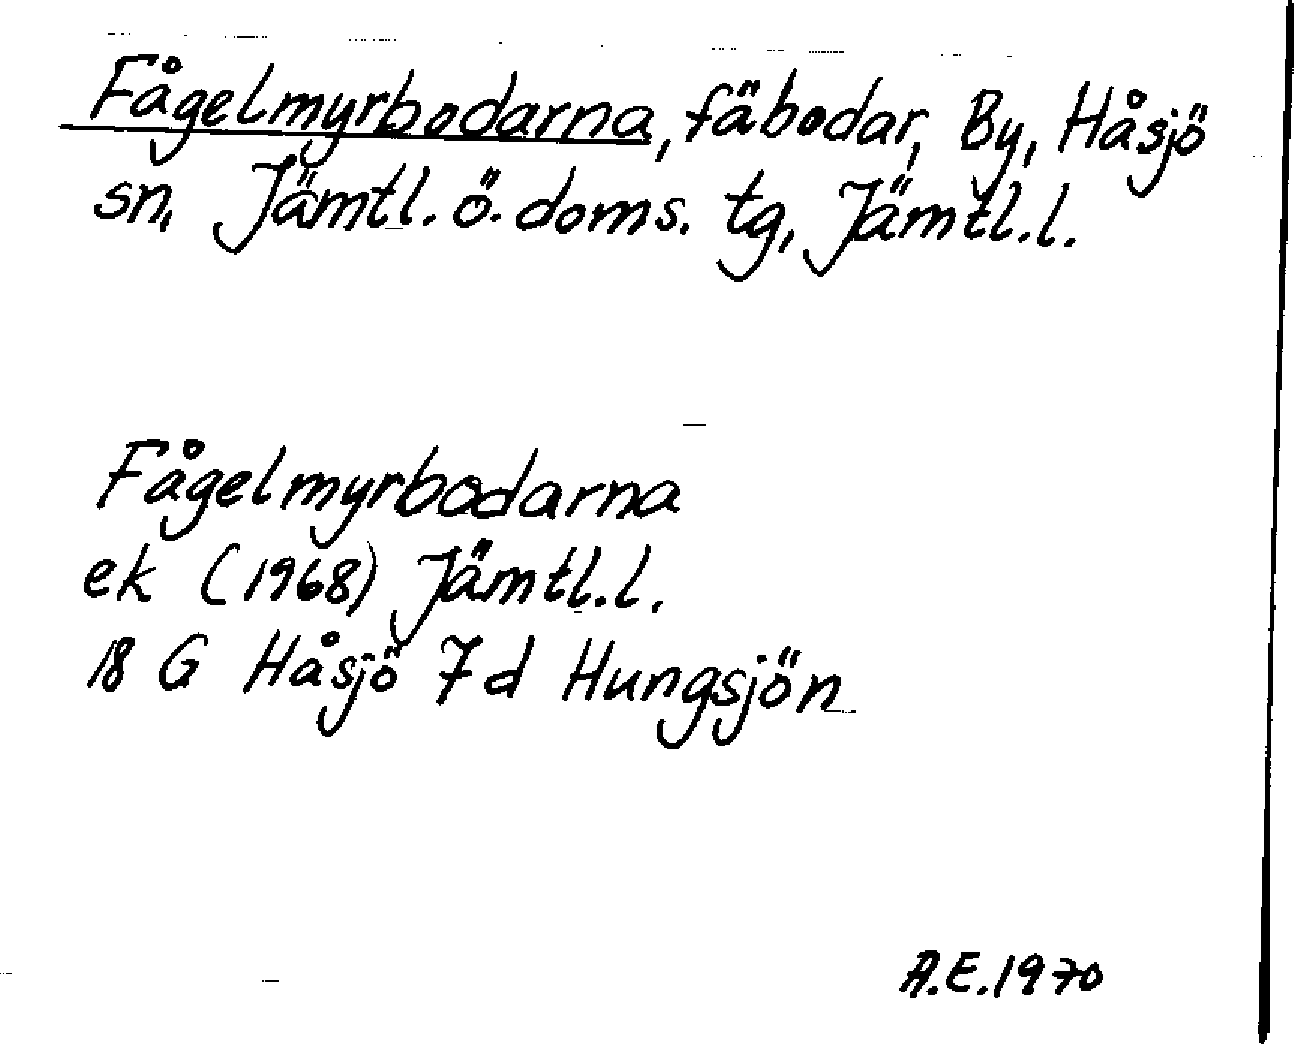 Fågelmyrbodarna, fäbodar, By, Håsjö
sn, Jämtl. ö. doms. tg, Jämtl. l.
Fågelmyrbodarna
ek (1968) Jämtl. l.
18 G Håsjö 7d Hungsjön
A.E. 1970